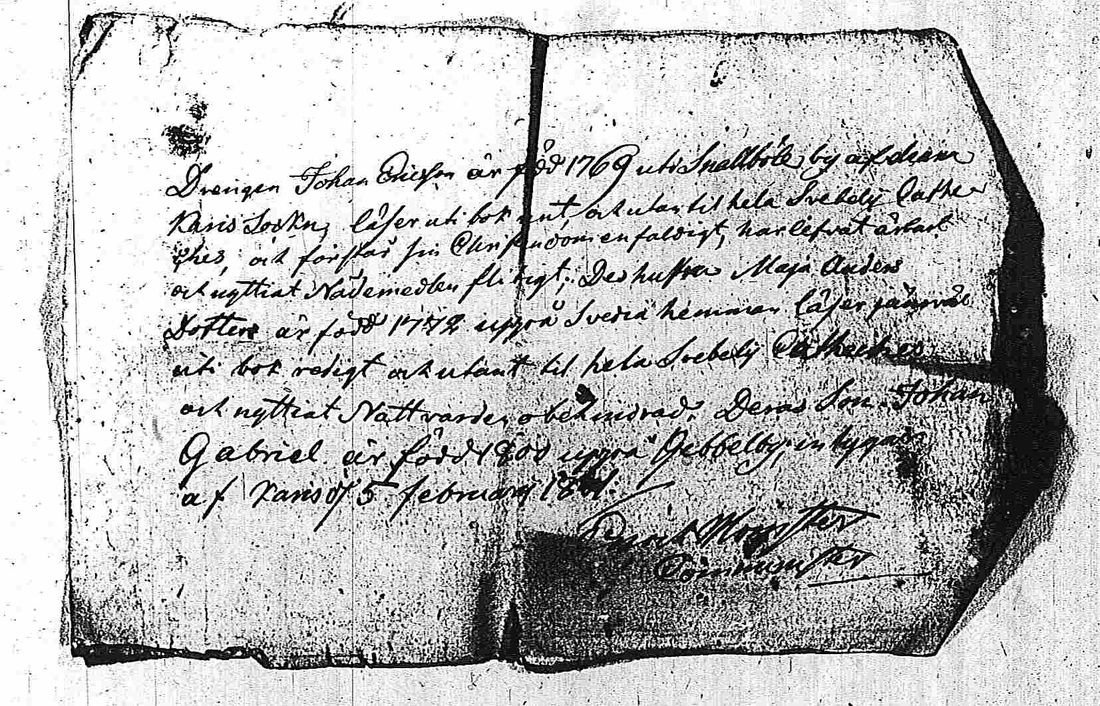 Drengen Johan Ericsson är född 1769 uti Snallböle by af denna
Karis Sockn, läser uti bok rent, och utan til hela Svebelii Cathe
ches, och förstår sin Christendom enfaldigt, har lefvat ärbart
och nyttiat Nådemedlen flitigt; Des hustru Maja Anders
Dotter är född 1772 uppå Svedia hemman läser jämväl
uti bok redigt och utant til hela Svebelii Catheches
och nyttiat Nattvarden obehindrad. Deras Son Johan
Gabriel är född 1800 uppå Gebbelby, intygas
af Karis d. 5 februarij 1801.
Comminister